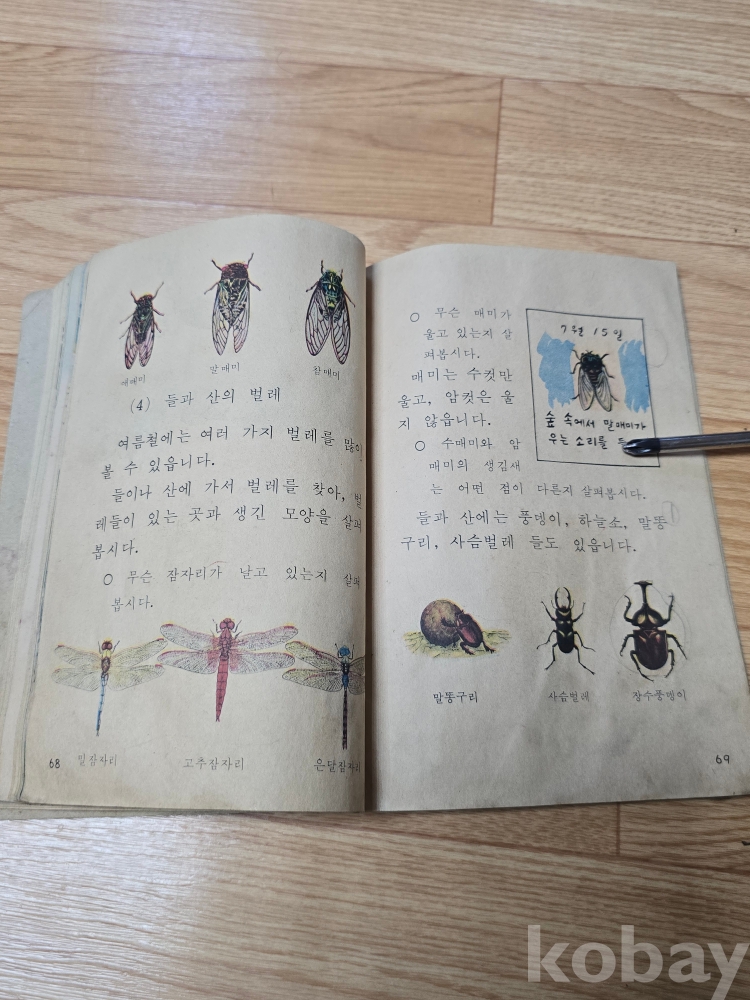 애매미
말매미
참매미
(4) 들과 산의 벌레
여름철에는 여러 가지 벌레를 많이
볼 수 있읍니다.
들이나 산에 가서 벌레를 찾아, 벌
레들이 있는 곳과 생긴 모양을 살펴
봅시다.
○ 무슨 잠자리가 날고 있는지 살펴
봅시다.
밀잠자리
고추잠자리
은달잠자리
68
○ 무슨 매미가
울고 있는지 살
펴봅시다.
매미는 수컷만
울고, 암컷은 울
지 않읍니다.
○ 수매미와 암
매미의 생김새
는 어떤 점이 다른지 살펴봅시다.
7월 15일
숲 속에서 말매미가
우는 소리를
들과 산에는 풍뎅이, 하늘소, 말똥
구리, 사슴벌레 들도 있읍니다.
말똥구리
사슴벌레
장수풍뎅이
69
kobay